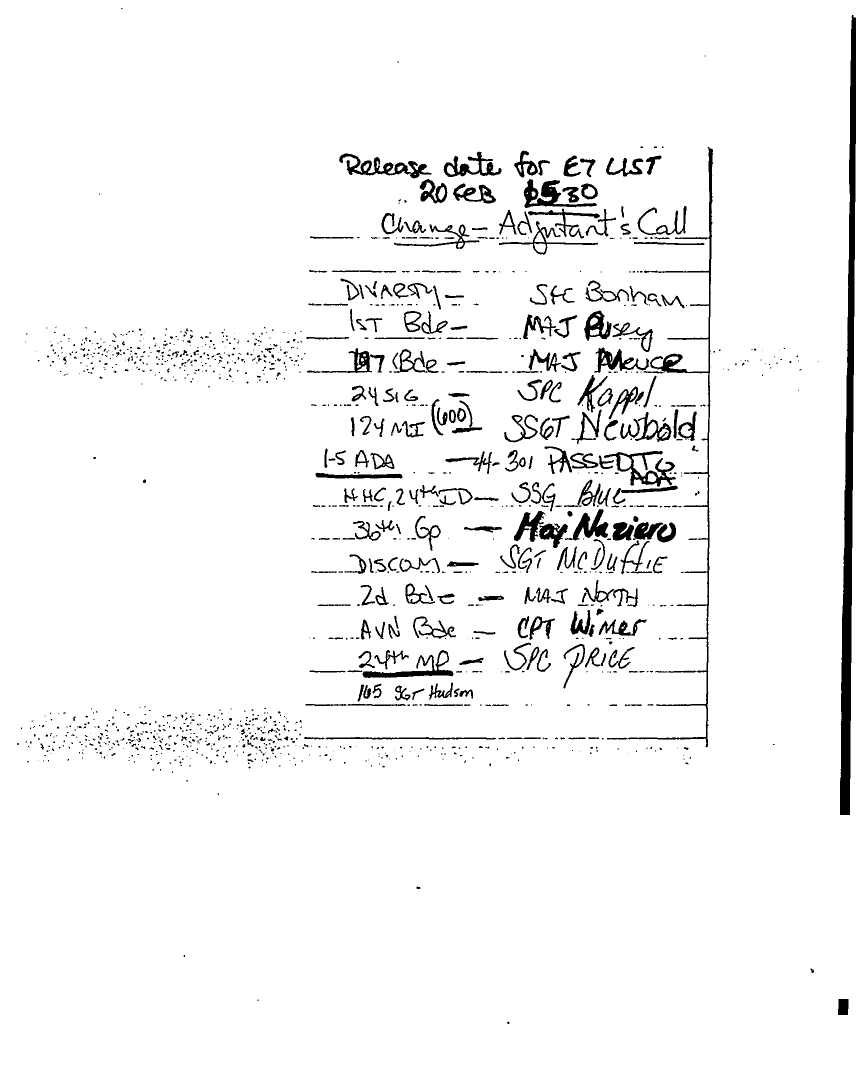 Release date for E7 LIST
20 FEB 0530
Change - Adjutant's Call
DIVARTY - SFC Bonham
1ST Bde - MAJ Pusey
197 Bde - MAJ
24 SIG - SPC Kappel
124 MI (600) - SSGT Newbold
1-5 ADA - 44-301 PASSED TO
ADA
HHC, 24th ID - SSG Blue
36th Gp - Maj Naziero
DISCOM - SGT McDuffie
2d Bde - MAJ NORTH
AVN Bde - CPT Wimer
24th MP - SPC PRICE
165 SGT Hudson